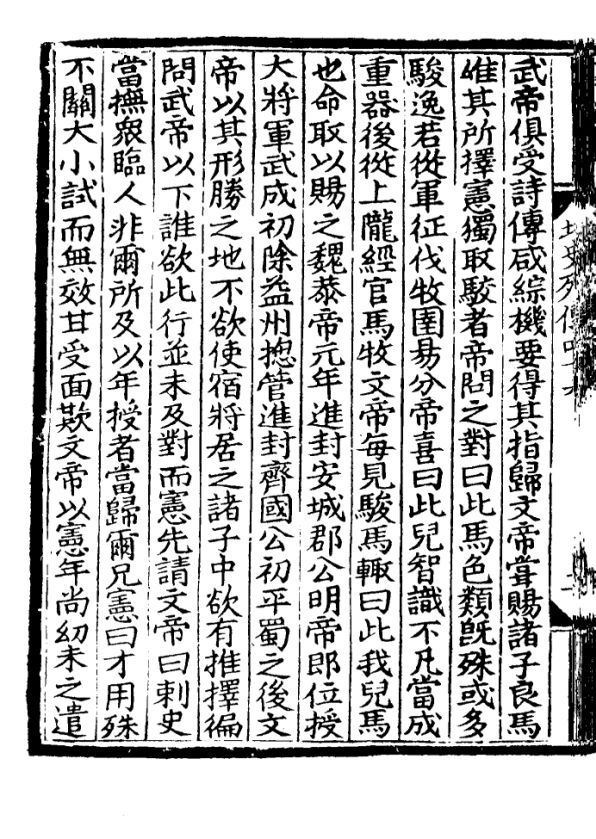 武帝俱受詩傳咸綜機要得其指歸文帝甞賜諸子良馬
惟其所擇憲獨取駮者帝問之對曰此馬色類旣殊或多
駿逸若從軍征伐牧圉易分帝喜曰此兒智識不凡當成
重器後從上隴經官馬牧文帝每見駮馬輙曰此我兒馬
也命取以賜之魏恭帝元年進封安城郡公明帝即位授
大將軍武成初除益州揔管進封齊國公初平蜀之後文
帝以其形勝之地不欲使宿將居之諸子中欲有推擇徧
問武帝以下誰欲此行並未及對而憲先請文帝曰刺史
當撫衆臨人非爾所及以年授者當歸爾兄憲曰才用殊
不關大小試而無效甘受面欺文帝以憲年尚幼未之遣